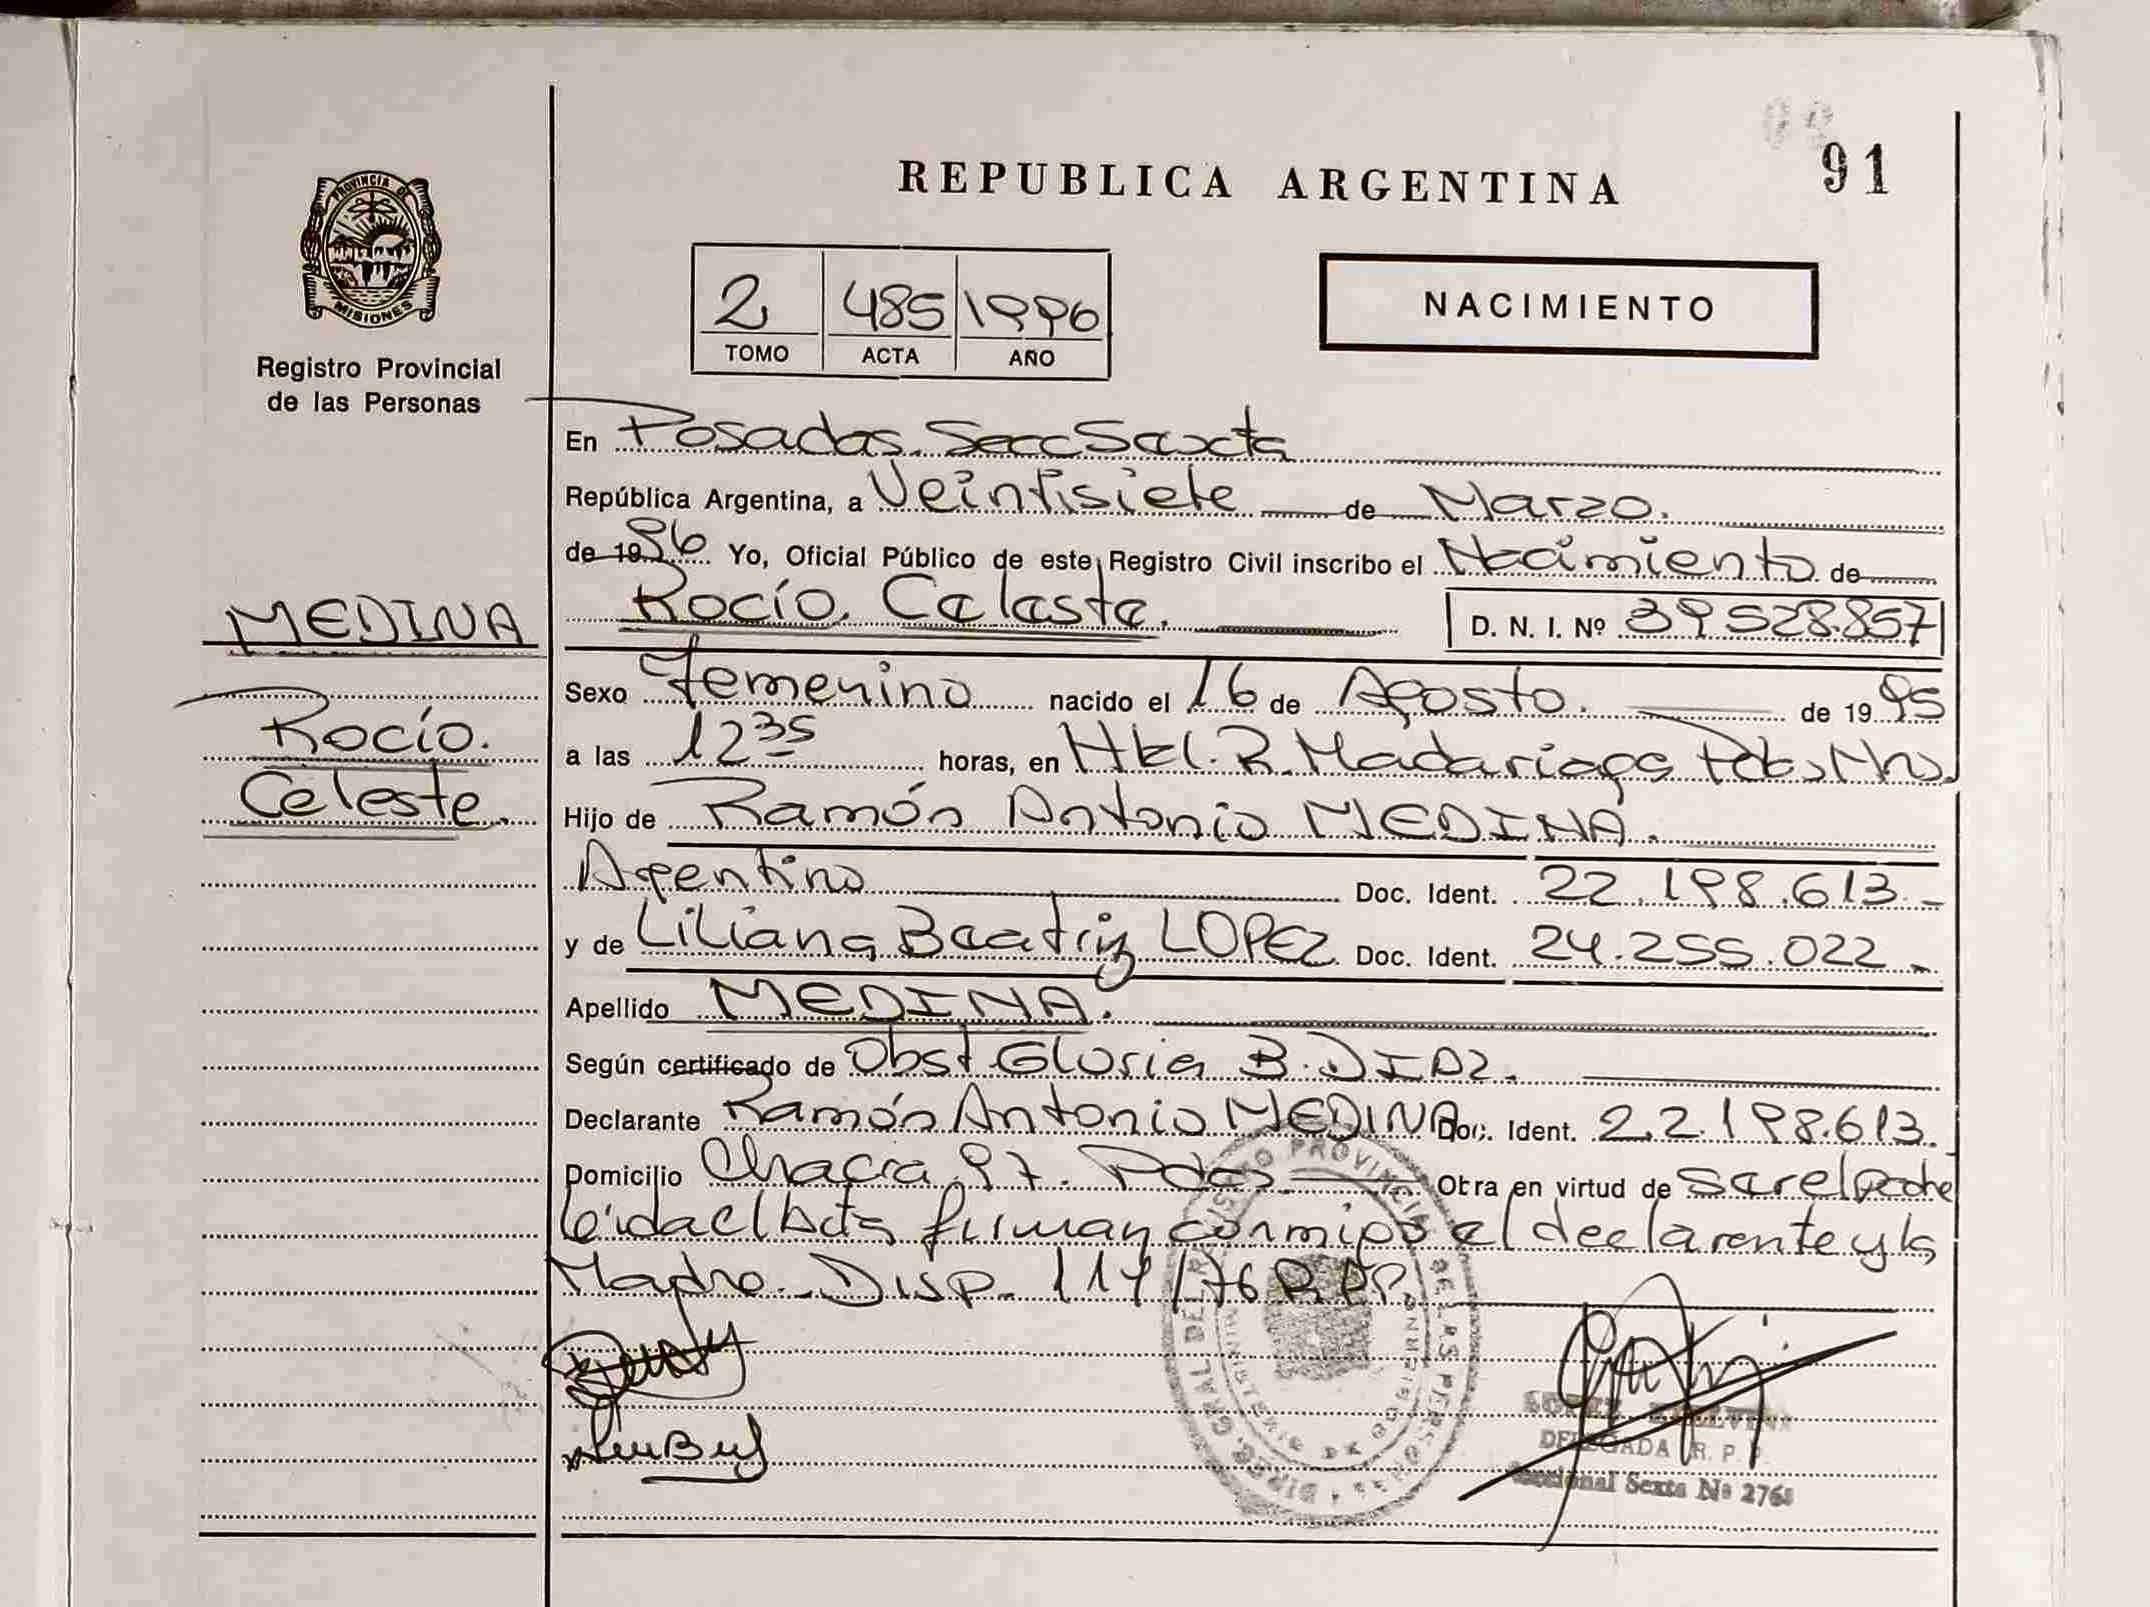 REPUBLICA ARGENTINA
91
PROVINCIA DE MISIONES
Registro Provincial
de las Personas
2 485 1996
TOMO ACTA AÑO
NACIMIENTO
En Posadas. Secc Sexta
República Argentina, a Veintisiete de Marzo.
de 1996 Yo, Oficial Público de este Registro Civil inscribo el Nacimiento de
Rocío. Celeste.
D. N. I. Nº 39528.857
MEDINA
Rocío.
Celeste.
Sexo Femenino nacido el 16 de Agosto. de 1995
a las 12 35 horas, en Htal. R. Madariaga Pdas, Mns.
Hijo de Ramón Antonio MEDINA.
Argentino Doc. Ident. 22.198.613.-
y de Liliana Beatriz LOPEZ. Doc. Ident. 24.255.022.-
Apellido MEDINA.
Según certificado de Obst Gloria B. DIAZ.
Declarante Ramón Antonio MEDINA Doc. Ident. 22.198.613.
Domicilio Chacra 97. Pdas. Otra en virtud de ser el padre
leida el Acta firman conmigo el declarente y la
Madre. Disp. 117/76 R.P.P.
DIREC. GRAL DEL REGISTRO PROVINCIAL DE LAS PERSONAS
DELEGADA R. P. P.
Seccional Sexta Nº 2768